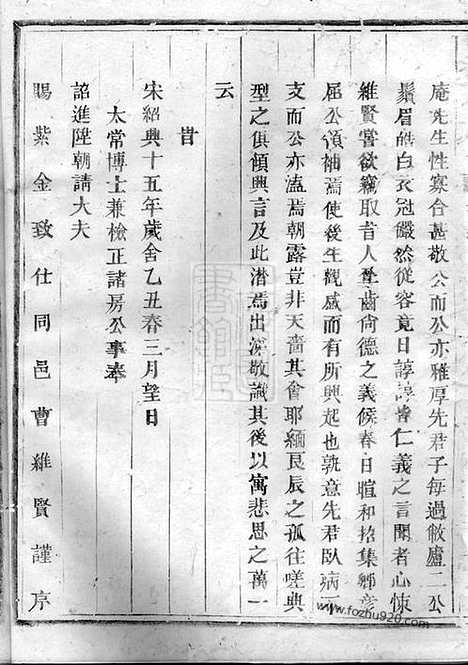 庵先生性寡合甚敬公而公亦雅厚先君子每過敝廬二公
鬚眉皓白衣冠儼然從容竟日諄諄皆仁義之言聞者心悚
維賢嘗欲竊取昔人尊齒尙德之義候春日暄和招集鄉彦
屈公領袖焉使後生觀感而有所興起也孰意先君臥病不
支而公亦溘焉朝露豈非天嗇其會耶緬良辰之孤往嗟典
型之俱傾興言及此潜焉出涕敬識其後以寓悲思之萬一
云
旹
宋紹興十五年歲舍乙丑春三月望日
太常博士兼檢正諸房公事奉
詔進陞朝請大夫
賜紫金致仕同邑曹維賢謹序
www.fozhu920.com